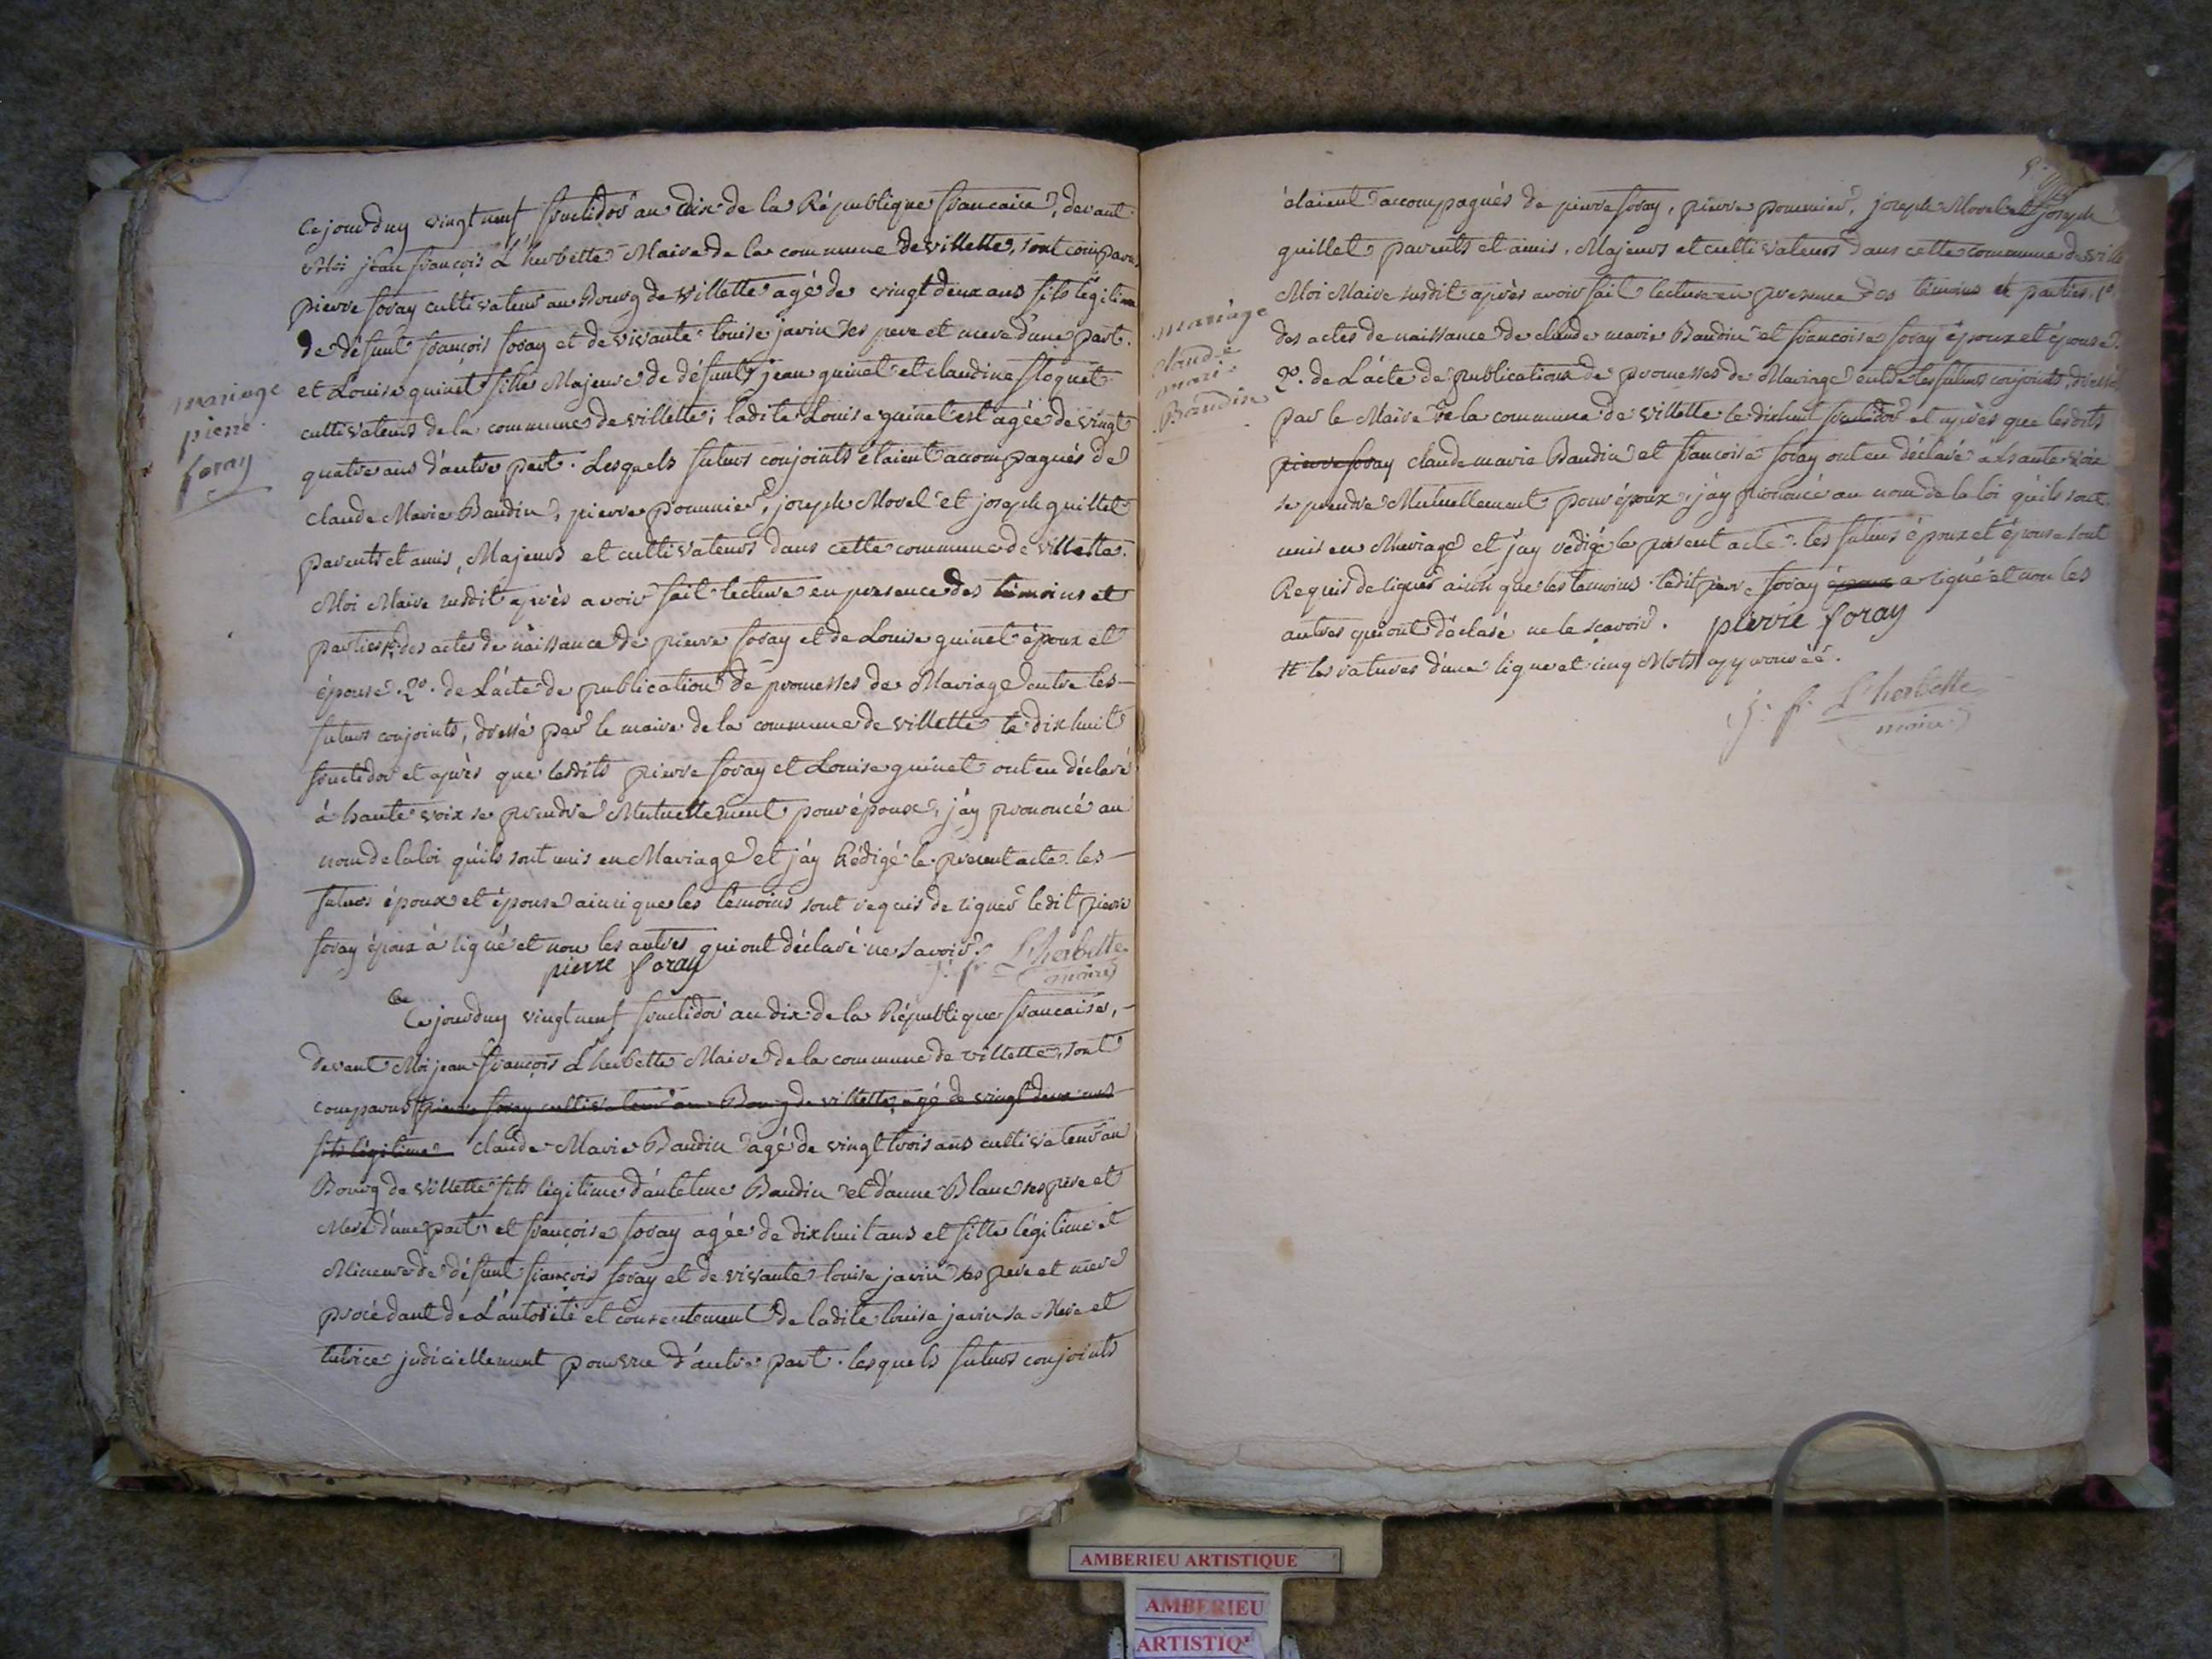 Cejourduy vingt neuf fructidor an dix de la République francaise, devant
Moi jean françois L'herbette Maire de la commune de villette, sont comparus
pierre foray cultivateur au Bourg de villette agé de vingt deux ans fils légitime
de défunt françois foray et de vivante louise javin ses pere et mere d'une part.
et Louise guinet fille Majeure de défunts jean guinet et claudine floquet
cultivateurs de la commune de villette; ladite Louise guinet est agée de vingt
quatre ans d'autre part. Lesquels futurs conjoints étaient accompagnés de
claude Marie Baudin, pierre pommier, joseph Morel et joseph guillet
parents et amis, Majeurs et cultivateurs dans cette commune de villette.
Moi Maire susdit après avoir fait lecture en presence des témoins et
parties 1º. des actes de naissance de pierre foray et de Louise guinet époux et
épouse. 2º. de L'acte de publication de promesses de Mariage entre les
futurs conjoints, dressé par le maire de la commune de villette le dix huit
fructidor et après que lesdits pierre foray et Louise guinet ont eu déclaré
à haute voix se prendre Mutuellement pour époux, j'ay prononcé au
nom de la loi qu'ils sont unis en Mariage et j'ay Rédigé le present acte. les
futurs époux et épouse ainsi que les témoins sont requis de signer ledit pierre
foray époux à signé et non les autres qui ont déclaré ne savoir.
pierre foray
j. f. L'herbette
maire
mariage
pierre
foray
Ce
Cejourduy vingt neuf fructidor an dix de la République francaise,
devant Moi jean françois L'herbette Maire de la commune de villette, sont
comparus pierre foray cultivateur au Bourg de villette, agé de vingt deux ans
fils légitime claude Marie Baudin agé de vingt trois ans cultivateur au
Bourg de villette fils légitime d'antelme Baudin et d'anne Blanc ses pere et
Mere d'une part, et françoise foray agée de dix huit ans et fille légitime et
Mineure de défunt françois foray et de vivante louise javin ses pere et mere
procédant de L'autorité et consentement de ladite louise javin sa Mere et
tutrice judiciellement pourvue d'autre part. lesquels futurs conjoints
étaient accompagnés de pierre foray, pierre pommier, joseph Morel et joseph
guillet parents et amis, Majeurs et cultivateurs dans cette commune de ville
Moi Maire susdit après avoir fait lecture en presence des témoins et parties, 1º.
des actes de naissance de claude marie Baudin et françoise foray époux et épouse.
2º. de L'acte de publication de promesses de Mariage entre les futurs conjoints, dressé
par le Maire de la commune de villette le dix huit fructidor et après que lesdits
pierre foray claude marie Baudin et françoise foray ont eu déclaré à haute voix
se prendre Mutuellement pour époux, j'ay prononcé au nom de la loi qu'ils sont
unis en Mariage et j'ay redigé le present acte. les futurs époux et épouse sont
Requis de signer ainsi que les temoins. ledit pierre foray époux a signé et non les
autres qui ont déclaré ne le sçavoir. pierrie foray
les ratures d'une ligne et cinq Mots approuvée.
j. f. L'herbette
maire
mariage
claude
mari
Baudin
AMBERIEU ARTISTIQUE
AMBERIEU
ARTISTIQ